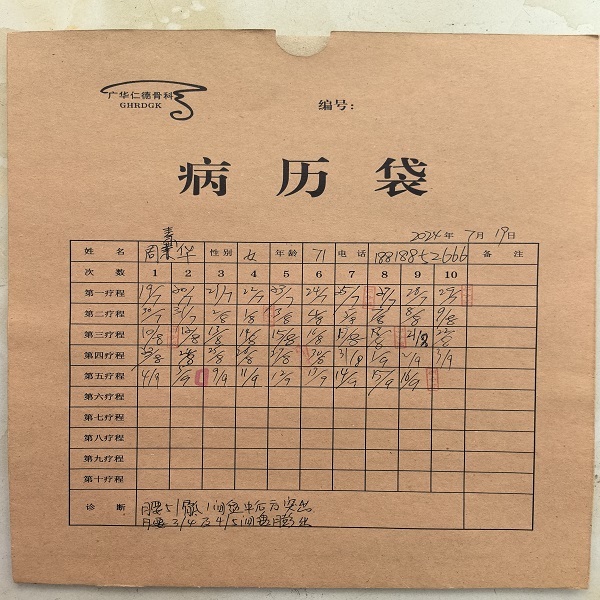 广华仁德骨科
GHRDGK
编号：
病历袋
2024年 7月 19日
姓名 周素华 性别 女 年龄 71 电话 18818852666 备注
次数 1 2 3 4 5 6 7 8 9 10
第一疗程 19/7 20/7 21/7 22/7 23/7 24/7 25/7 27/7 28/7 29/7
第二疗程 30/7 31/7 2/8 3/8 4/8 8/8 9/8
第三疗程 10/8 12/8 13/8 14/8 15/8 16/8 17/8 18/8 21/8 22/8
第四疗程 23/8 24/8 25/8 26/8 27/8 30/8 31/8 1/9 2/9 3/9
第五疗程 4/9 5/9 9/9 11/9 12/9 13/9 14/9 15/9 16/9
第六疗程
第七疗程
第八疗程
第九疗程
第十疗程
诊断 腰5/骶1间盘中后方突出
腰3/4及4/5间盘膨出